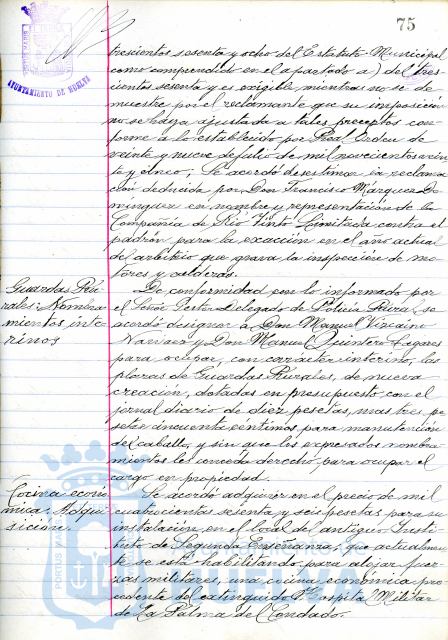 75
AYUNTAMIENTO DE HUELVA
trescientos sesenta y ocho del Estatuto Municipal
como comprendido en el apartado a) del tres-
cientos sesenta y es exigible mientras no se de-
muestre por el reclamante que su imposición
no se haya ajustada a tales preceptos con-
forme a lo establecido por Real Orden de
veinte y nueve de julio de mil novecientos vein-
te y cinco; Se acordó desestimar la reclama-
ción deducida por Don Francisco Márquez Do-
minguez en nombre y representación de la
Compañía de Río Tinto Limitada contra el
padrón para la exacción en el año actual
del arbitrio que grava la inspección de mo-
tores y calderas.
Guardas Ru-
rales: Nombra-
mientos inte-
rinos
De conformidad con lo informado por
el Señor Gestor Delegado de Policía Rural, se
acordó designar a Don Manuel Vizcaino
Narvaez y Don Manuel Quintero Lagares
para ocupar, con carácter interino, las
plazas de Guardas Rurales, de nueva
creación, dotadas en presupuesto con el
jornal diario de diez pesetas, mas tres pe-
setas cincuenta céntimos para manutención
del caballo, y sin que los expresados nombra-
mientos les conceda derecho para ocupar el
cargo en propiedad.
Cocina econó-
mica: Adqui-
sición.
Se acordó adquirir en el precio de mil
cuatrocientas sesenta y seis pesetas para su
instalación, en el local del antiguo Insti-
tuto de Segunda Enseñanza, que actualmen-
te se está habilitando para alojar fuer-
zas militares, una cocina económica pro-
cedente del extinguido Hospital Militar
de La Palma del Condado.
PORTUS MARIS